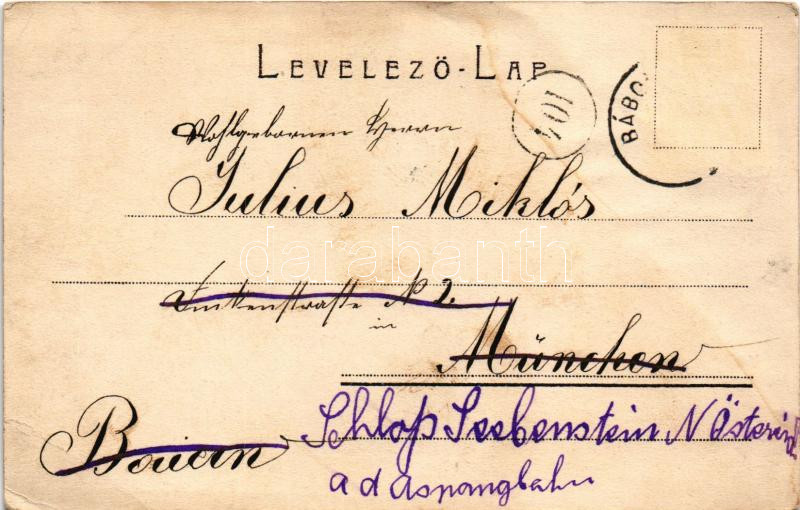 LEVELEZŐ-LAP
101
BÁBO
Wohlgebornen Herrn
Julius Miklós
darabanth
Finkenstrasse No 2.
in
München
Baiern
Schloß Seebenstein N Österreich
a d Aspangbahn